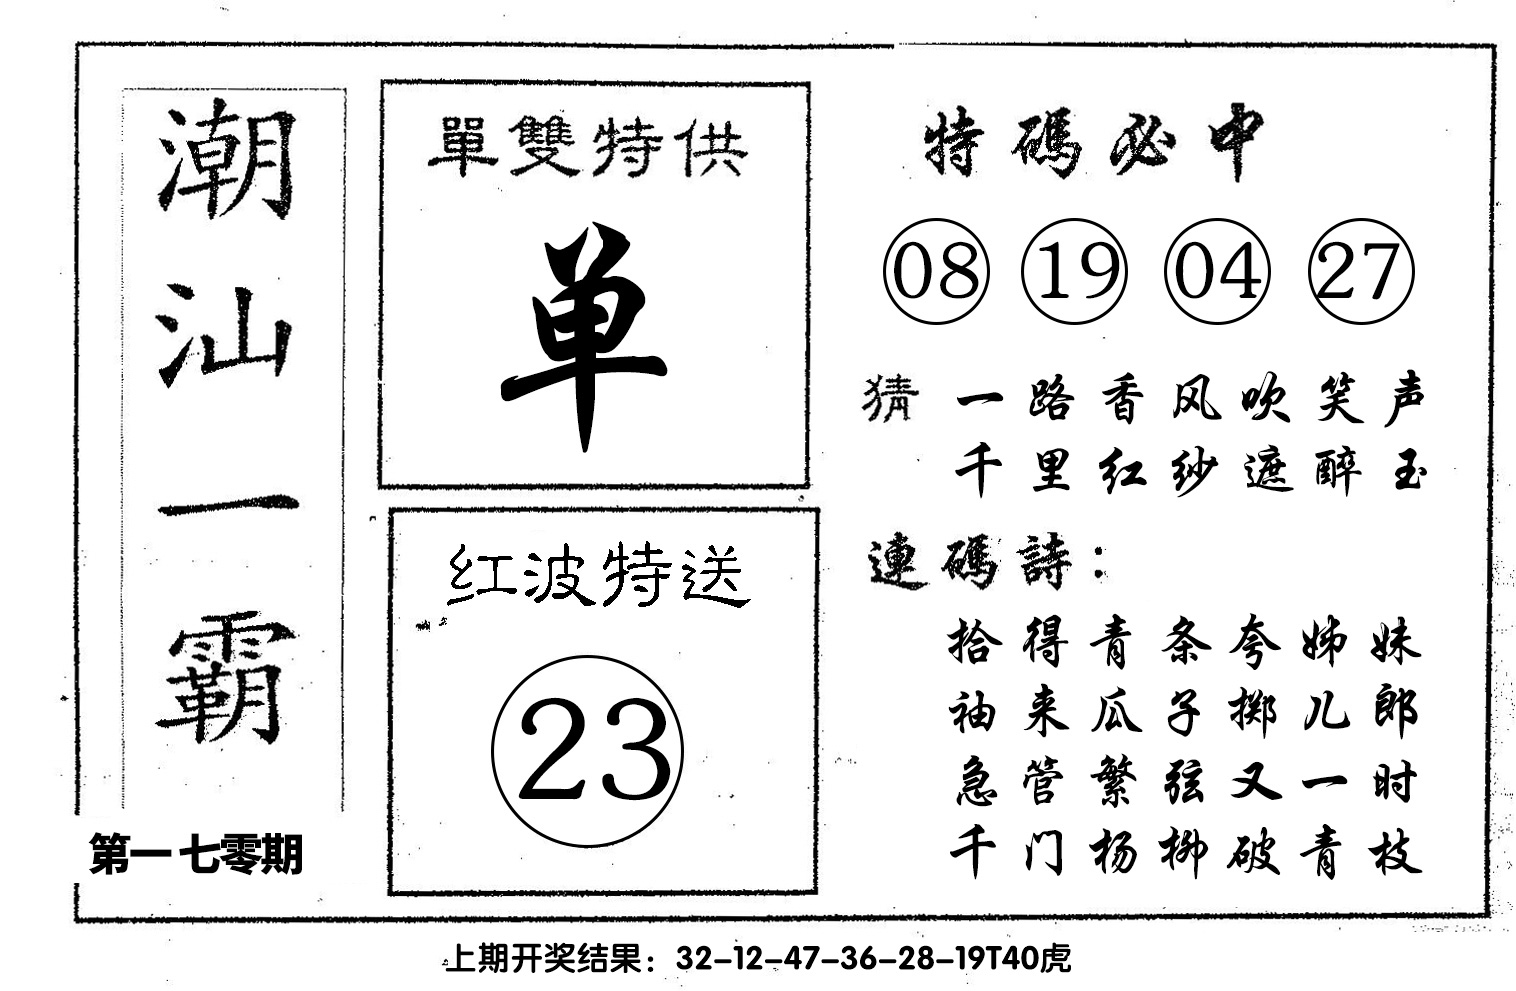 潮汕一霸
第一七零期
單雙特供
单
红波特送
23
特碼必中
08 19 04 27
猜 一路香风吹笑声
千里红纱遮醉玉
連碼詩：
拾得青条夸姊妹
袖来瓜子掷儿郎
急管繁弦又一时
千门杨柳破青枝
上期开奖结果：32-12-47-36-28-19T40虎